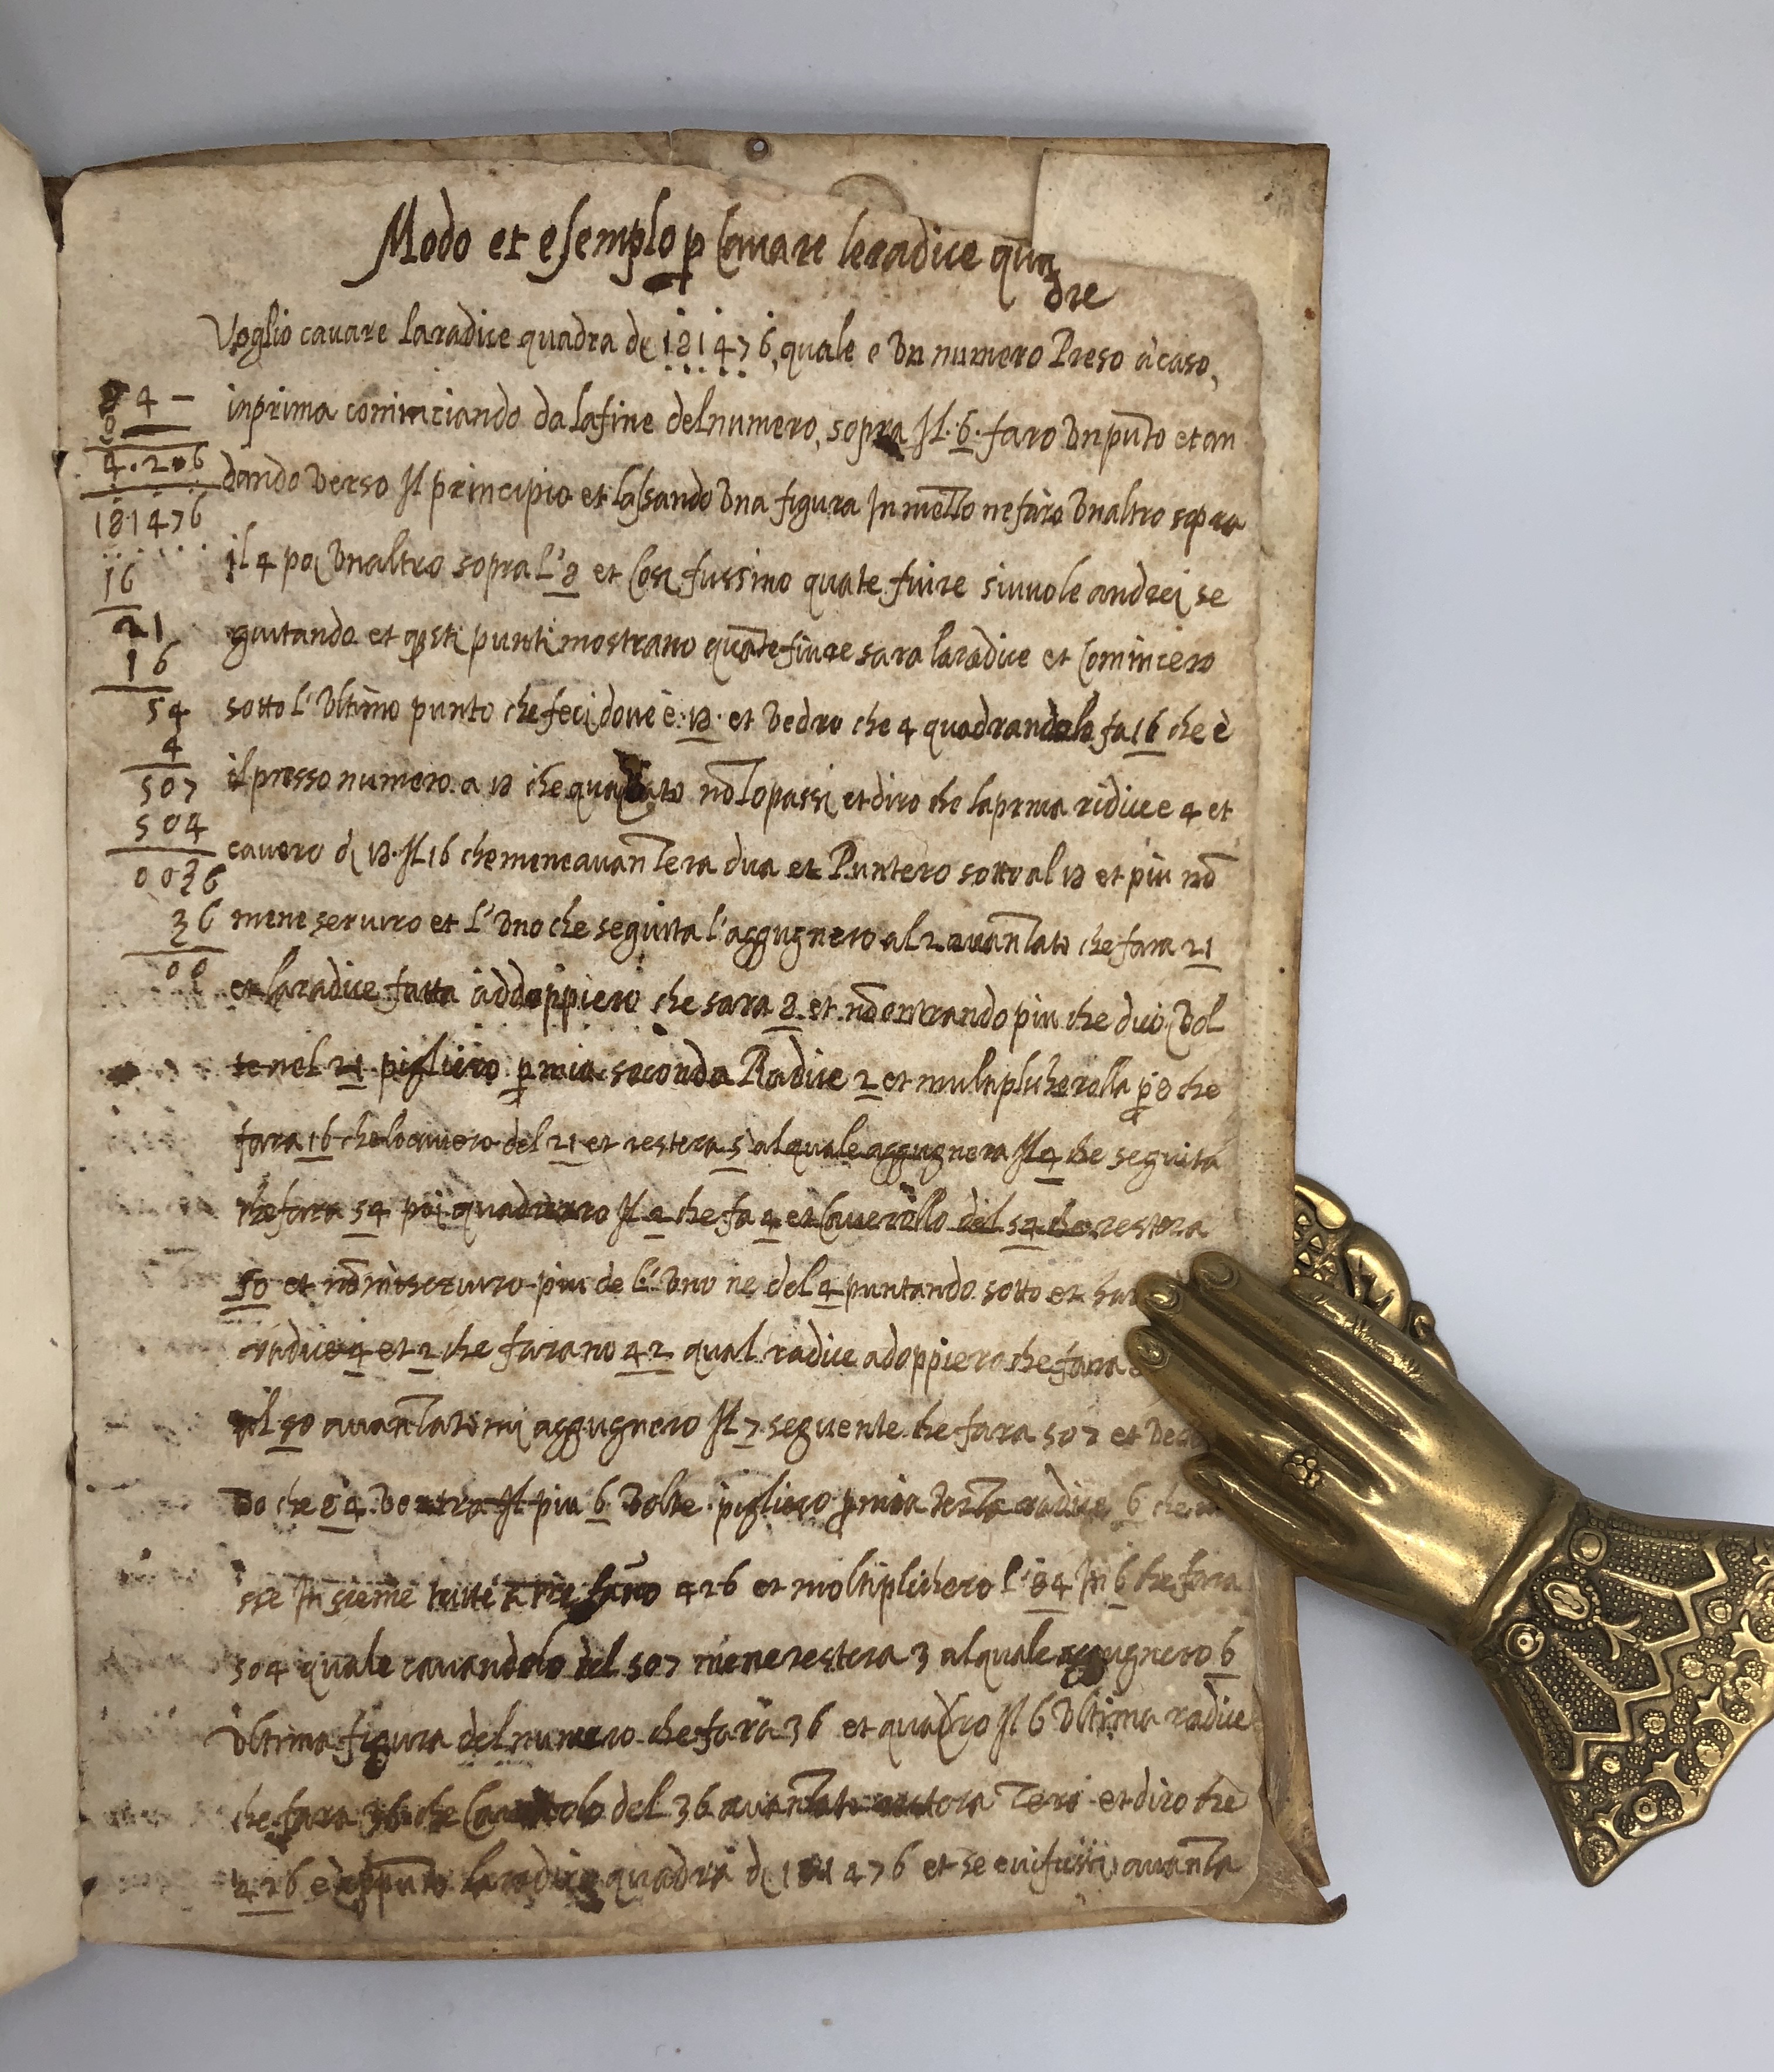 Modo et esemplo p cavare le radice qua
dre
Voglio cavare la radice quadra de 181476, quale e un numero Preso à caso,
in prima cominciando da la fine del numero, sopra Il 6. faro un puto et an
dando verso Il principio et lassando una figura In mezzo ne faro unaltro sopra
il 4 poi unaltro sopra l'8 et Cosi fussino quate fuire si vuole andrei se
guitando et qsti punti mostrano quate fiure sara la radice et Comincero
sotto l'ultimo punto che feci dove è 18 et vedro che 4 quadrandolo fa 16 che è
il presso numero a 18 che no lo passi et diro che la prima ridice e 4 et
cavero di 18 Il 16 che mene avanzera dua et Puntero sotto al 18 et piu no
mene serviro et l'uno che seguita l'aggugnero al 2 avanzato che fara 21
et la radice fatta addoppiero che sara 8 et no entrando piu che duo vol
te nel 21 pigliero p mia seconda Radice 2 et multiplicherolla p 8 che
fara 16 che lo cavero del 21 et restera 5 al quale aggugnera Il 4 che seguita
che fara 54 poi quadrerro Il 2 che fa 4 et Caverollo del 54 che restera
50 et no mi serviro piu de l'uno ne del 4 puntando sotto et
radice 4 et 2 che farano 42 qual radice adoppiero che fara
al 50 avanzatomi aggugnero Il 7 seguente che fara 507 et
do che 84 v'entra Il piu 6 volte pigliero p mia terza radice 6 che
sse Insieme tutti a tre fano 426 et moltiplichero l'84 In 6 che fara
504 quale cavandolo del 507 mene restera 3 al quale aggugnero 6
ultima figura del numero che fara 36 et quadro Il 6 ultima radice
che fara 36 che del 36 avanzato restera zero et diro che
426 è appunto la radice quadra di 181476 et se vi fussi avanza
84 -
8
4.2.6
181476
16
21
16
54
4
507
504
0036
36
00